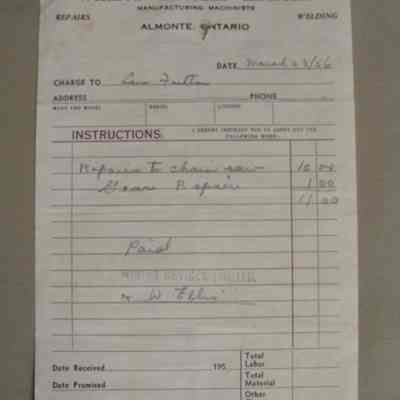 MANUFACTURING MACHINISTS
REPAIRS WELDING
ALMONTE, ONTARIO
DATE March 23/56
CHARGE TO Fulton
ADDRESS PHONE
MAKE AND MODEL SERIAL LICENSE
INSTRUCTIONS: I HEREBY INSTRUCT YOU TO CARRY OUT THE
FOLLOWING WORK:
Repairs to chain saw 10 00
Repair 1 00
11 00
Paid
LIMITED
W. Ellis
Date Received 195 Total Labor
Date Promised Total Material
Other